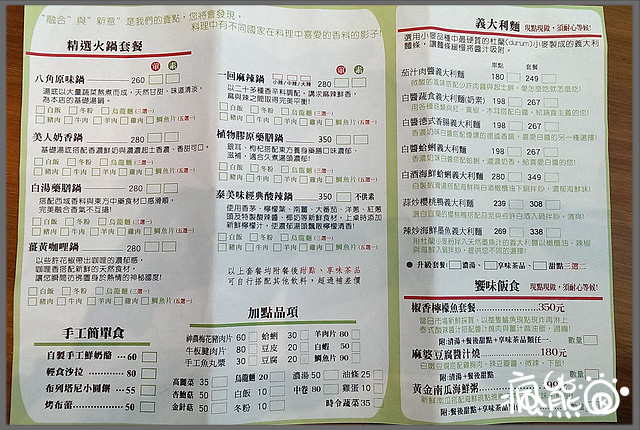 "融合"與"新意"是我們的賣點，您將會發現，
料理中有不同國家在料理中喜愛的香料的影子!
精選火鍋套餐
葷 素
八角原味鍋 260
湯底以大量蔬菜熬煮而成，天然甘甜、味道清淡，
為本店的基礎湯鍋。
白飯 冬粉 烏龍麵(三選一)
豬肉 牛肉 羊肉 雞肉 鯛魚片(五選一)
美人奶香鍋 280
基礎湯底搭配香濃鮮奶與濃濃起士香濃、香甜可口。
白飯 冬粉 烏龍麵(三選一)
豬肉 牛肉 羊肉 雞肉 鯛魚片(五選一)
白湯藥膳鍋 280
搭配西域香料與東方中藥食材口感滑順，
完美融合香氣不互搶!
白飯 冬粉 烏龍麵(三選一)
豬肉 牛肉 羊肉 雞肉 鯛魚片(五選一)
薑黃咖哩鍋 280
以些許花椒帶出咖哩的濃郁感，
咖哩香搭配新鮮的天然食材，
讓您瞬間彷彿置身於熱情的神秘國度!
白飯 冬粉 烏龍麵(三選一)
豬肉 牛肉 羊肉 雞肉 鯛魚片(五選一)
手工簡單食
自製手工鮮奶酪 …60
輕食沙拉 ……80
布列塔尼小圓餅 …55
烤布蕾 ……50
葷 素
一回麻辣鍋 小辣/中辣/大辣 340
以二十多種香辛料調配，講求麻辣鮮香，
寓與辣之間取得完美平衡!
白飯 冬粉 烏龍麵(三選一)
豬肉 牛肉 羊肉 雞肉 鯛魚片(五選一)
植物膠原藥膳鍋 350
銀耳、枸杞搭配東方養身藥膳口味濃郁、
滋補，適合久煮湯頭濃郁!
白飯 冬粉 烏龍麵(三選一)
豬肉 牛肉 羊肉 雞肉 鯛魚片(五選一)
泰美味經典酸辣鍋 350 不供素
使用香茅、檸檬葉、南薑、大番茄、洋蔥、紅蔥
頭及特製酸辣醬、椰奶等新鮮食材，上桌時添加
新鮮檸檬汁，使濃郁湯頭飄散檸檬清香!
白飯 冬粉 烏龍麵(三選一)
豬肉 牛肉 羊肉 雞肉 鯛魚片(五選一)
以上套餐均附餐後甜點、享味茶品
可自行搭配其他飲料，超過補差價
加點品項
神農梅花豬肉片 60 蛤蜊 30 羊肉片 80
牛板腱肉片 80 豆皮 20 白蝦 50
手工魚丸漿 30 豆腐 20 鯛魚片 90
高麗菜 35 烏龍麵 20 濃湯 50 油條 25
杏鮑菇 50 白飯 10 中卷 80 雞蛋 10
金針菇 50 冬粉 10 時令蔬菜35
義大利麵 現點現做，須耐心等候!
選用小麥品種中最硬質的杜蘭(durum)小麥製成的義大利
麵條，讓麵條緩慢將醬汁吸附。
單點 套餐
茄汁肉醬義大利麵 180 249
白醬蔬食義大利麵(奶素) 198 267
白醬德式香腸義大利麵 198 267
白醬蛤蜊義大利麵 198 267
白酒海鮮蛤蜊義大利麵 280 349
蒜炒櫻桃鴨義大利麵 239 308
辣炒海鮮墨魚義大利麵 269 338
升級套餐 濃湯、 享味茶品、 甜點 三選二
饗味飯食 現點現做，須耐心等候!
椒香檸檬魚套餐 ……350元
附:清湯+餐後甜點+享味茶品顏任一. 數量
麻婆豆腐醬汁燒 ……180元
附:清湯+餐後甜點 數量
黃金南瓜海鮮粥
附:餐後甜點+享味茶品
瘋熊